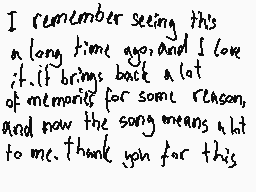 I remember seeing this
a long time ago, and I love
it. it brings back a lot
of memories for some reason,
and now the song means a lot
to me. thank you for this